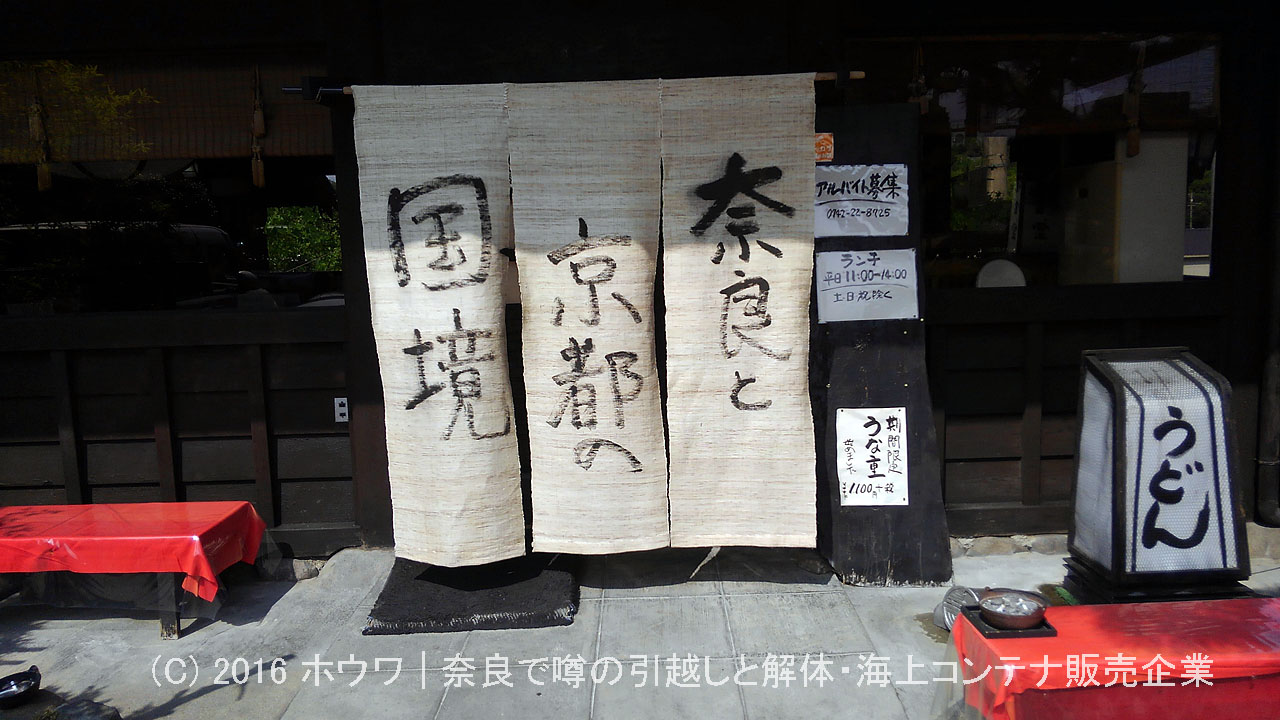 奈良と
京都の
国境
アルバイト募集
0742-22-8725
ランチ
平日11:00-14:00
土・日・祝除く
期間限定
うな重
1100円+税
うどん
(C) 2016 ホウワ | 奈良で噂の引越しと解体・海上コンテナ販売企業